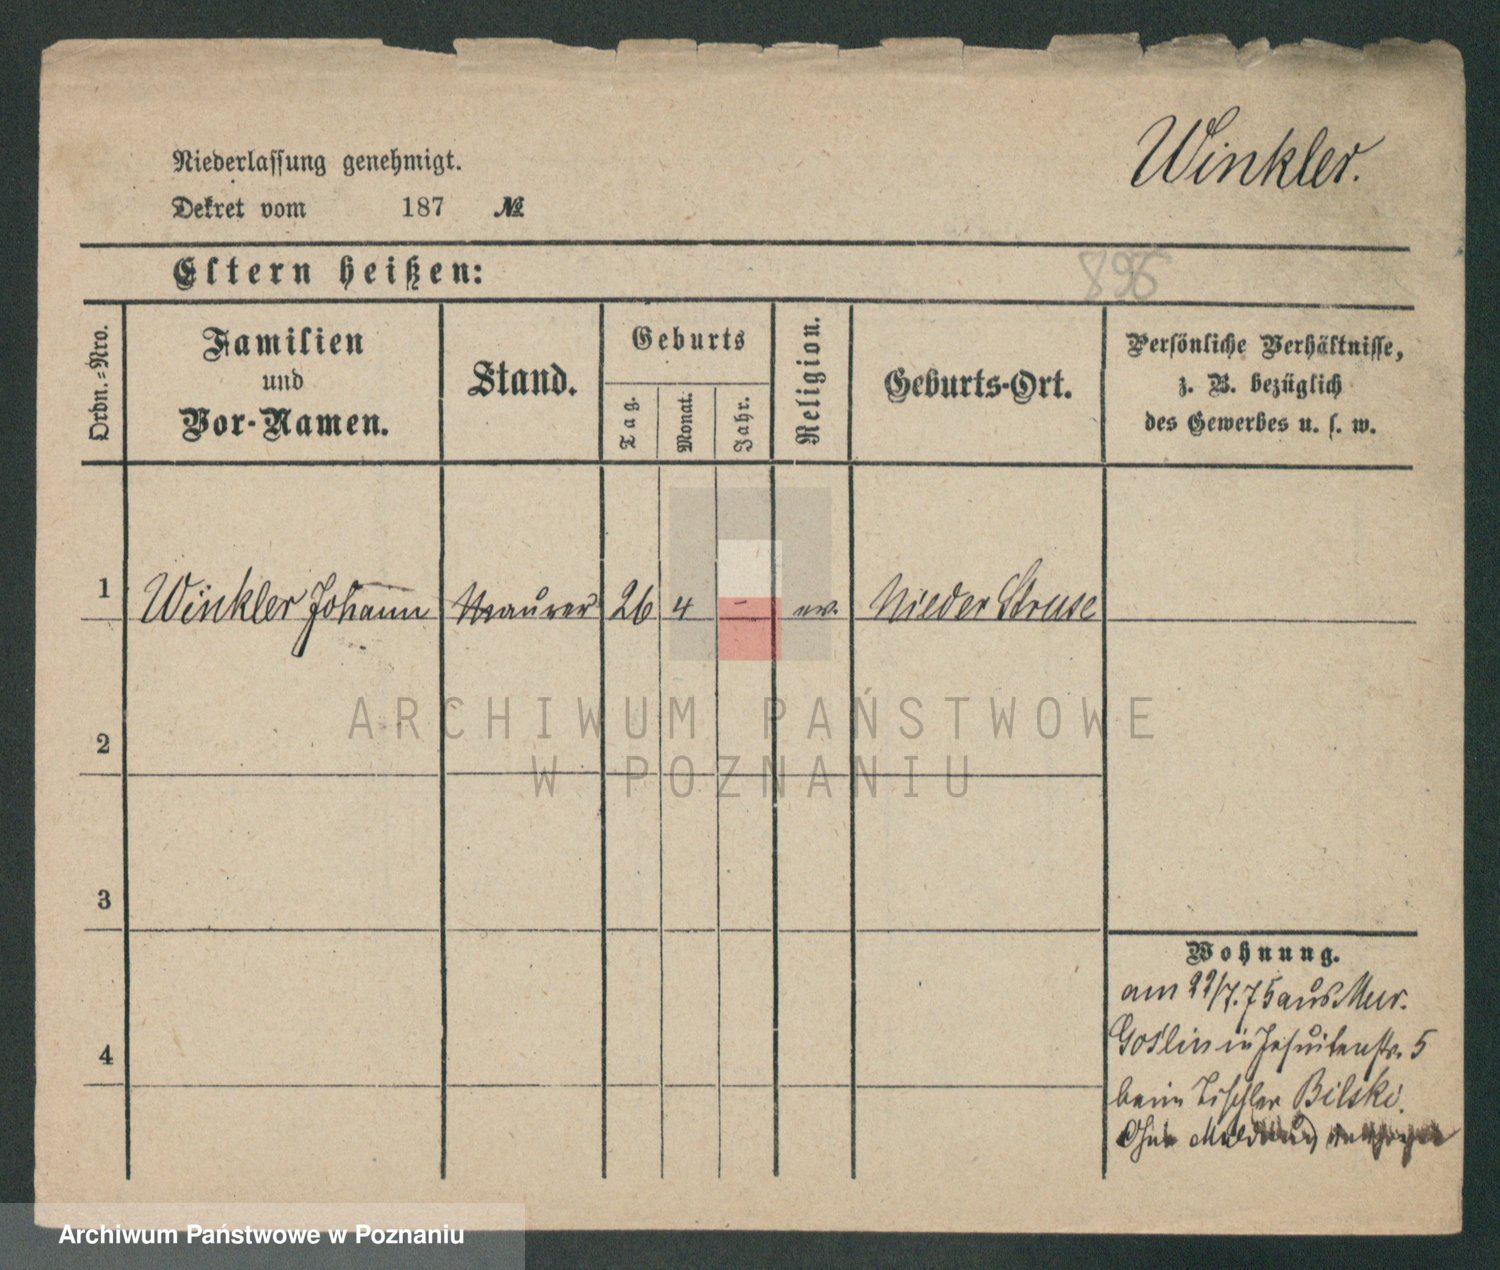 Winkler.
Niederlassung genehmigt.
Dekret vom 187 №
Eltern heißen:
895
Ordn.-Nro.
Familien
und
Vor-Namen.
Stand.
Geburts
Tag.
Monat.
Jahr.
Religion.
Geburts-Ort.
Persönliche Verhältnisse,
z. B. bezüglich
des Gewerbes u. s. w.
1 Winkler Johann Maurer 26 4 – ev. Nieder Struse
2
3
4
Wohnung.
am 22/7.75 aus Mur.
Goslin in Jesuitenstr. 5
beim Tischler Bilski.
Ohne Meldung
ARCHIWUM PAŃSTWOWE
W POZNANIU
Archiwum Państwowe w Poznaniu